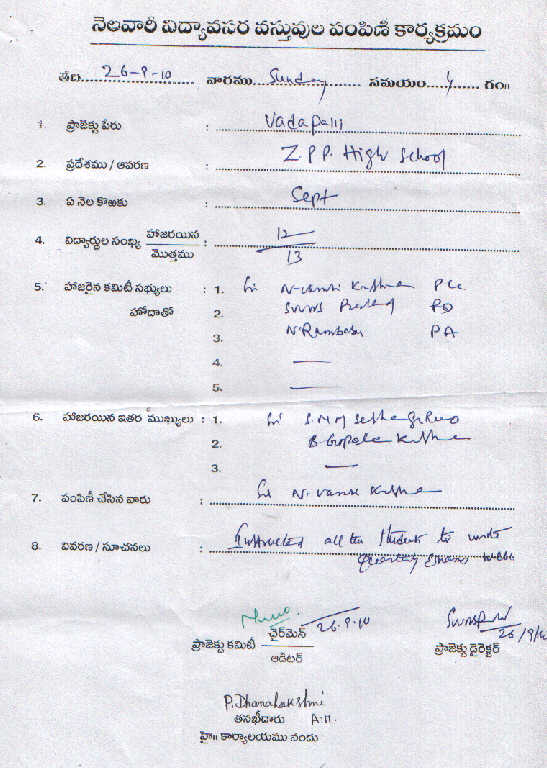 నెలవారీ విద్యావసర వస్తువుల పంపిణీ కార్యక్రమం
తేది. 26-9-10 వారము. Sunday సమయం. 4 గం॥
1. ప్రాజెక్టు పేరు : Vadapalli
2. ప్రదేశము / ఆవరణ : Z.P.P. High School
3. ఏ నెల కొఱకు : Sept
4. విద్యార్థుల సంఖ్య హాజరయిన : 12
మొత్తము 13
5. హాజరైన కమిటీ సభ్యులు : 1. Sri N. Vamsi Krishna P.C.
హోదాతో 2. SVVNS Prasad PD
3. N Rambabu PA
4. —
5. —
6. హాజరయిన ఇతర ముఖ్యులు : 1. Sri Seshagiri Rao
2. B Gopala Krishna
3. —
7. పంపిణీ చేసిన వారు : Sri N. Vamsi Krishna
8. వివరణ / సూచనలు : Instructed all the students to write
Quarterly Exams well
26-9-10
ప్రాజెక్టు కమిటీ ఛైర్మెన్
ఆడిటర్
26/9/10
ప్రాజెక్టు డైరెక్టర్
P. Dhanalakshmi
తణిఖీదారు A.H.
హై॥ కార్యాలయము నందు